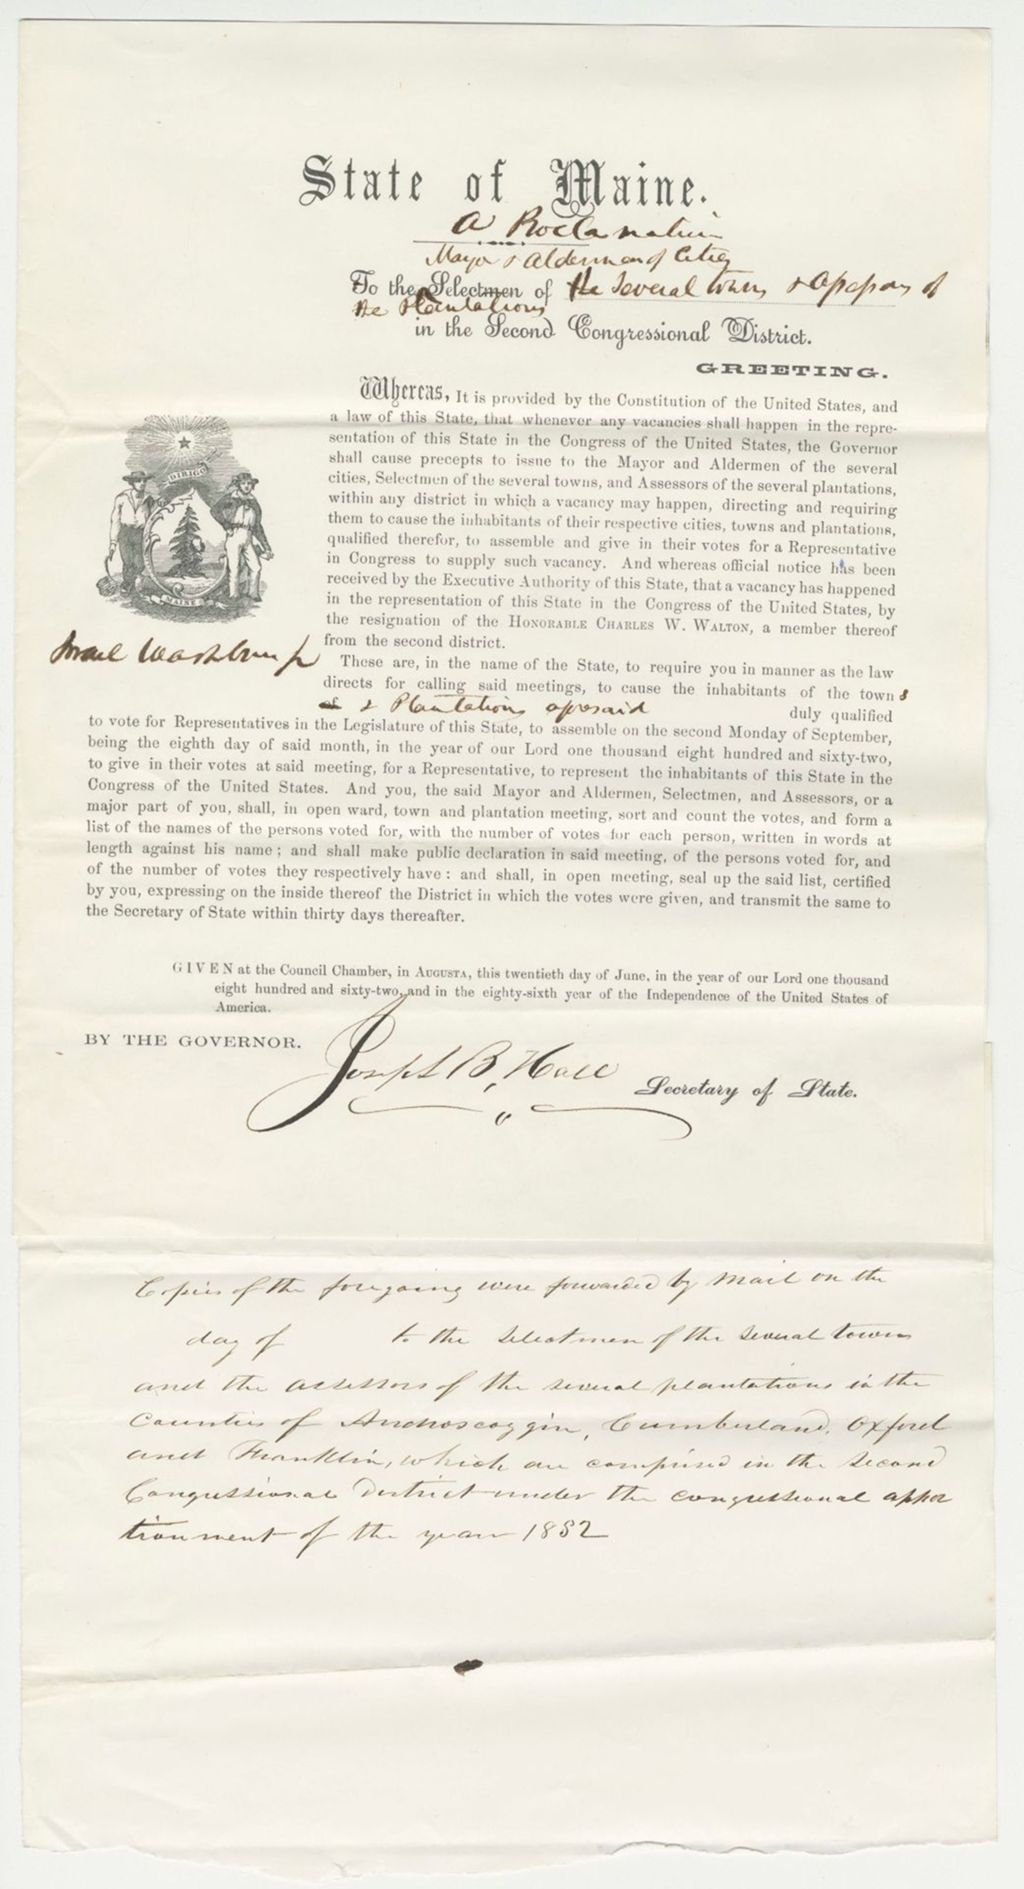 State of Maine.
A Proclamation
Mayor & Aldermen of Cities
To the Selectmen of the Several towns & Assessors of
the Plantations
in the Second Congressional District.
GREETING.
Whereas, It is provided by the Constitution of the United States, and
a law of this State, that whenever any vacancies shall happen in the repre-
sentation of this State in the Congress of the United States, the Governor
shall cause precepts to issue to the Mayor and Aldermen of the several
cities, Selectmen of the several towns, and Assessors of the several plantations,
within any district in which a vacancy may happen, directing and requiring
them to cause the inhabitants of their respective cities, towns and plantations,
qualified therefor, to assemble and give in their votes for a Representative
in Congress to supply such vacancy. And whereas official notice has been
received by the Executive Authority of this State, that a vacancy has happened
in the representation of this State in the Congress of the United States, by
the resignation of the HONORABLE CHARLES W. WALTON, a member thereof
from the second district.
DIRIGO
MAINE
Israel Washburn Jr
These are, in the name of the State, to require you in manner as the law
directs for calling said meetings, to cause the inhabitants of the towns
& Plantations aforesaid duly qualified
to vote for Representatives in the Legislature of this State, to assemble on the second Monday of September,
being the eighth day of said month, in the year of our Lord one thousand eight hundred and sixty-two,
to give in their votes at said meeting, for a Representative, to represent the inhabitants of this State in the
Congress of the United States. And you, the said Mayor and Aldermen, Selectmen, and Assessors, or a
major part of you, shall, in open ward, town and plantation meeting, sort and count the votes, and form a
list of the names of the persons voted for, with the number of votes for each person, written in words at
length against his name; and shall make public declaration in said meeting, of the persons voted for, and
of the number of votes they respectively have: and shall, in open meeting, seal up the said list, certified
by you, expressing on the inside thereof the District in which the votes were given, and transmit the same to
the Secretary of State within thirty days thereafter.
GIVEN at the Council Chamber, in AUGUSTA, this twentieth day of June, in the year of our Lord one thousand
eight hundred and sixty-two, and in the eighty-sixth year of the Independence of the United States of
America.
BY THE GOVERNOR.
Joseph B. Hall
Secretary of State.
Copies of the foregoing were forwarded by Mail on the
day of to the Selectmen of the several towns
and the assessors of the several plantations in the
Counties of Androscoggin, Cumberland, Oxford
and Franklin, which are comprised in the Second
Congressional District under the congressional appor
tionment of the year 1852